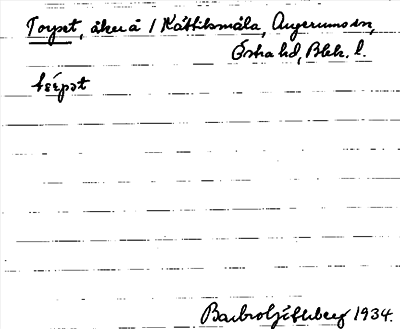 Torpet, åker å 1 Kättilsmåla, Augerums sn,
Östra hd, Blek. l.
Barbro Ljfberg 1934.